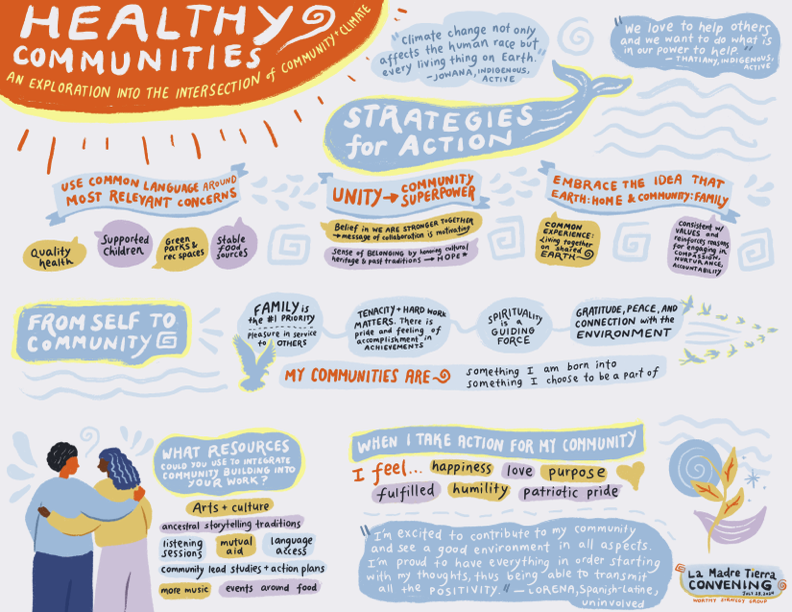 HEALTHY
COMMUNITIES
AN EXPLORATION INTO THE INTERSECTION of COMMUNITY + CLIMATE
"Climate change not only
affects the human race but
every living thing on Earth."
- JOWANA, INDIGENOUS,
ACTIVE
"We love to help others
and we want to do what is
in our power to help."
- THATIANY, INDIGENOUS,
ACTIVE
STRATEGIES
for ACTION
USE COMMON LANGUAGE AROUND
MOST RELEVANT CONCERNS
Quality
health
Supported
Children
Green
parks &
rec spaces
Stable
food
sources
UNITY → COMMUNITY
SUPERPOWER
Belief in WE ARE STRONGER TOGETHER
→ message of collaboration is motivating
Sense of BELONGING by honoring cultural
heritage & past traditions → HOPE *
EMBRACE THE IDEA THAT
EARTH:HOME & COMMUNITY:FAMILY
COMMON
EXPERIENCE:
Living together
on shared
EARTH
Consistent w/
VALUES and
reinforces reasons
for engaging in
COMPASSION,
NURTURANCE,
ACCOUNTABILITY
FROM SELF TO
COMMUNITY
FAMILY is
the #1 PRIORITY
Pleasure in service
to OTHERS
TENACITY + HARD WORK
MATTERS. There is
pride and feeling of
accomplishment in
ACHIEVEMENTS
SPIRITUALITY
is a
GUIDING
FORCE
GRATITUDE, PEACE, AND
CONNECTION with the
ENVIRONMENT
MY COMMUNITIES ARE
something I am born into
something I choose to be a part of
WHAT RESOURCES
COULD YOU USE TO INTEGRATE
COMMUNITY BUILDING INTO
YOUR WORK?
Arts + culture
ancestral storytelling traditions
listening
sessions
mutual
aid
language
access
community lead studies + action plans
more music
events around food
WHEN I TAKE ACTION FOR MY COMMUNITY
I feel...
happiness
love
purpose
fulfilled
humility
patriotic pride
"I'm excited to contribute to my community
and see a good environment in all aspects.
I'm proud to have everything in order starting
with my thoughts, thus being able to transmit
all the POSITIVITY." - LORENA, Spanish-Latine,
uninvolved
La Madre Tierra
CONVENING
JULY 25, 2024
WORTHY STRATEGY GROUP